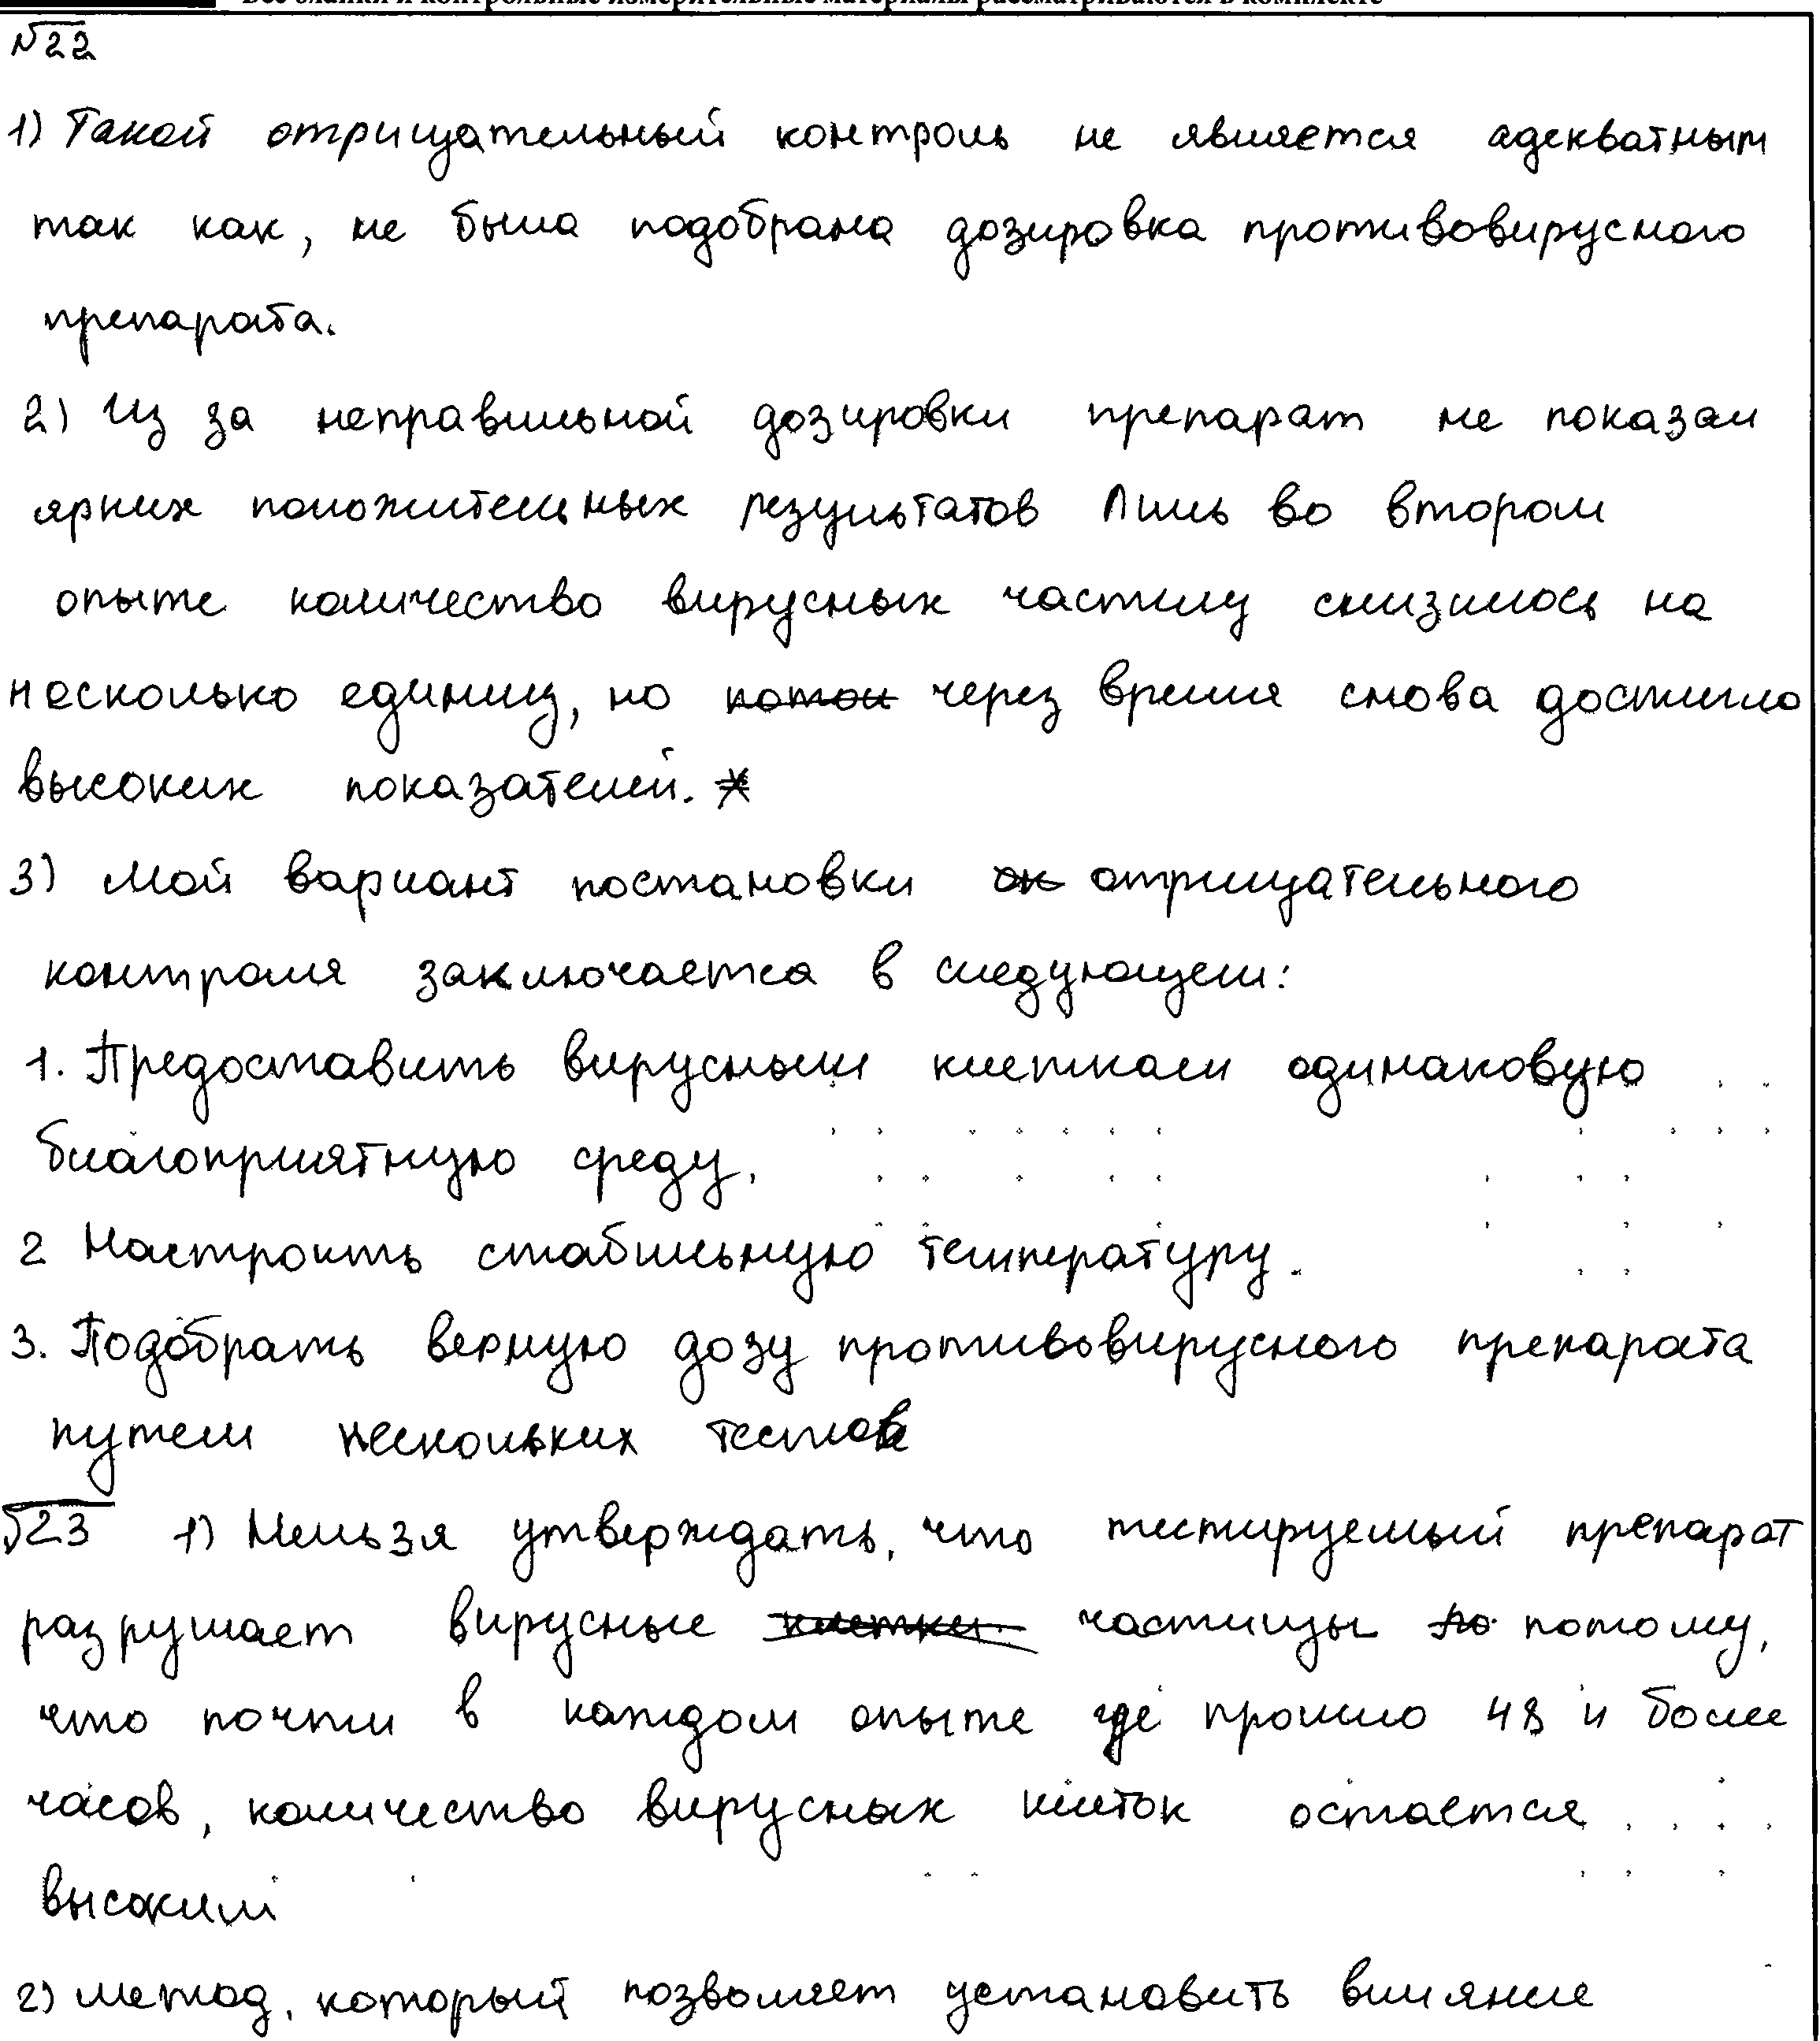 Все бланки и контрольные измерительные материалы рассматриваются в комплекте
№22
1) Такой отрицательный контроль не является адекватным
так как, не была подобрана дозировка противовирусного
препарата.
2) Из за неправильной дозировки препарат не показал
ярких положительных результатов Лишь во втором
опыте количество вирусных частиц снизилось на
несколько единиц, но потом через время снова достигло
высоких показателей.
3) Мой вариант постановки ок отрицательного
контроля заключается в следующем:
1. Предоставить вирусным клеткам одинаковую
благоприятную среду.
2 Настроить стабильную температуру.
3. Подобрать верную дозу противовирусного препарата
путем нескольких тестов
№23 1) Нельзя утверждать, что тестируемый препарат
разрушает вирусные клетки частицы по потому,
что почти в каждом опыте где прошло 48 и более
часов, количество вирусных клеток остается
высоким
2) метод, который позволяет установить влияние